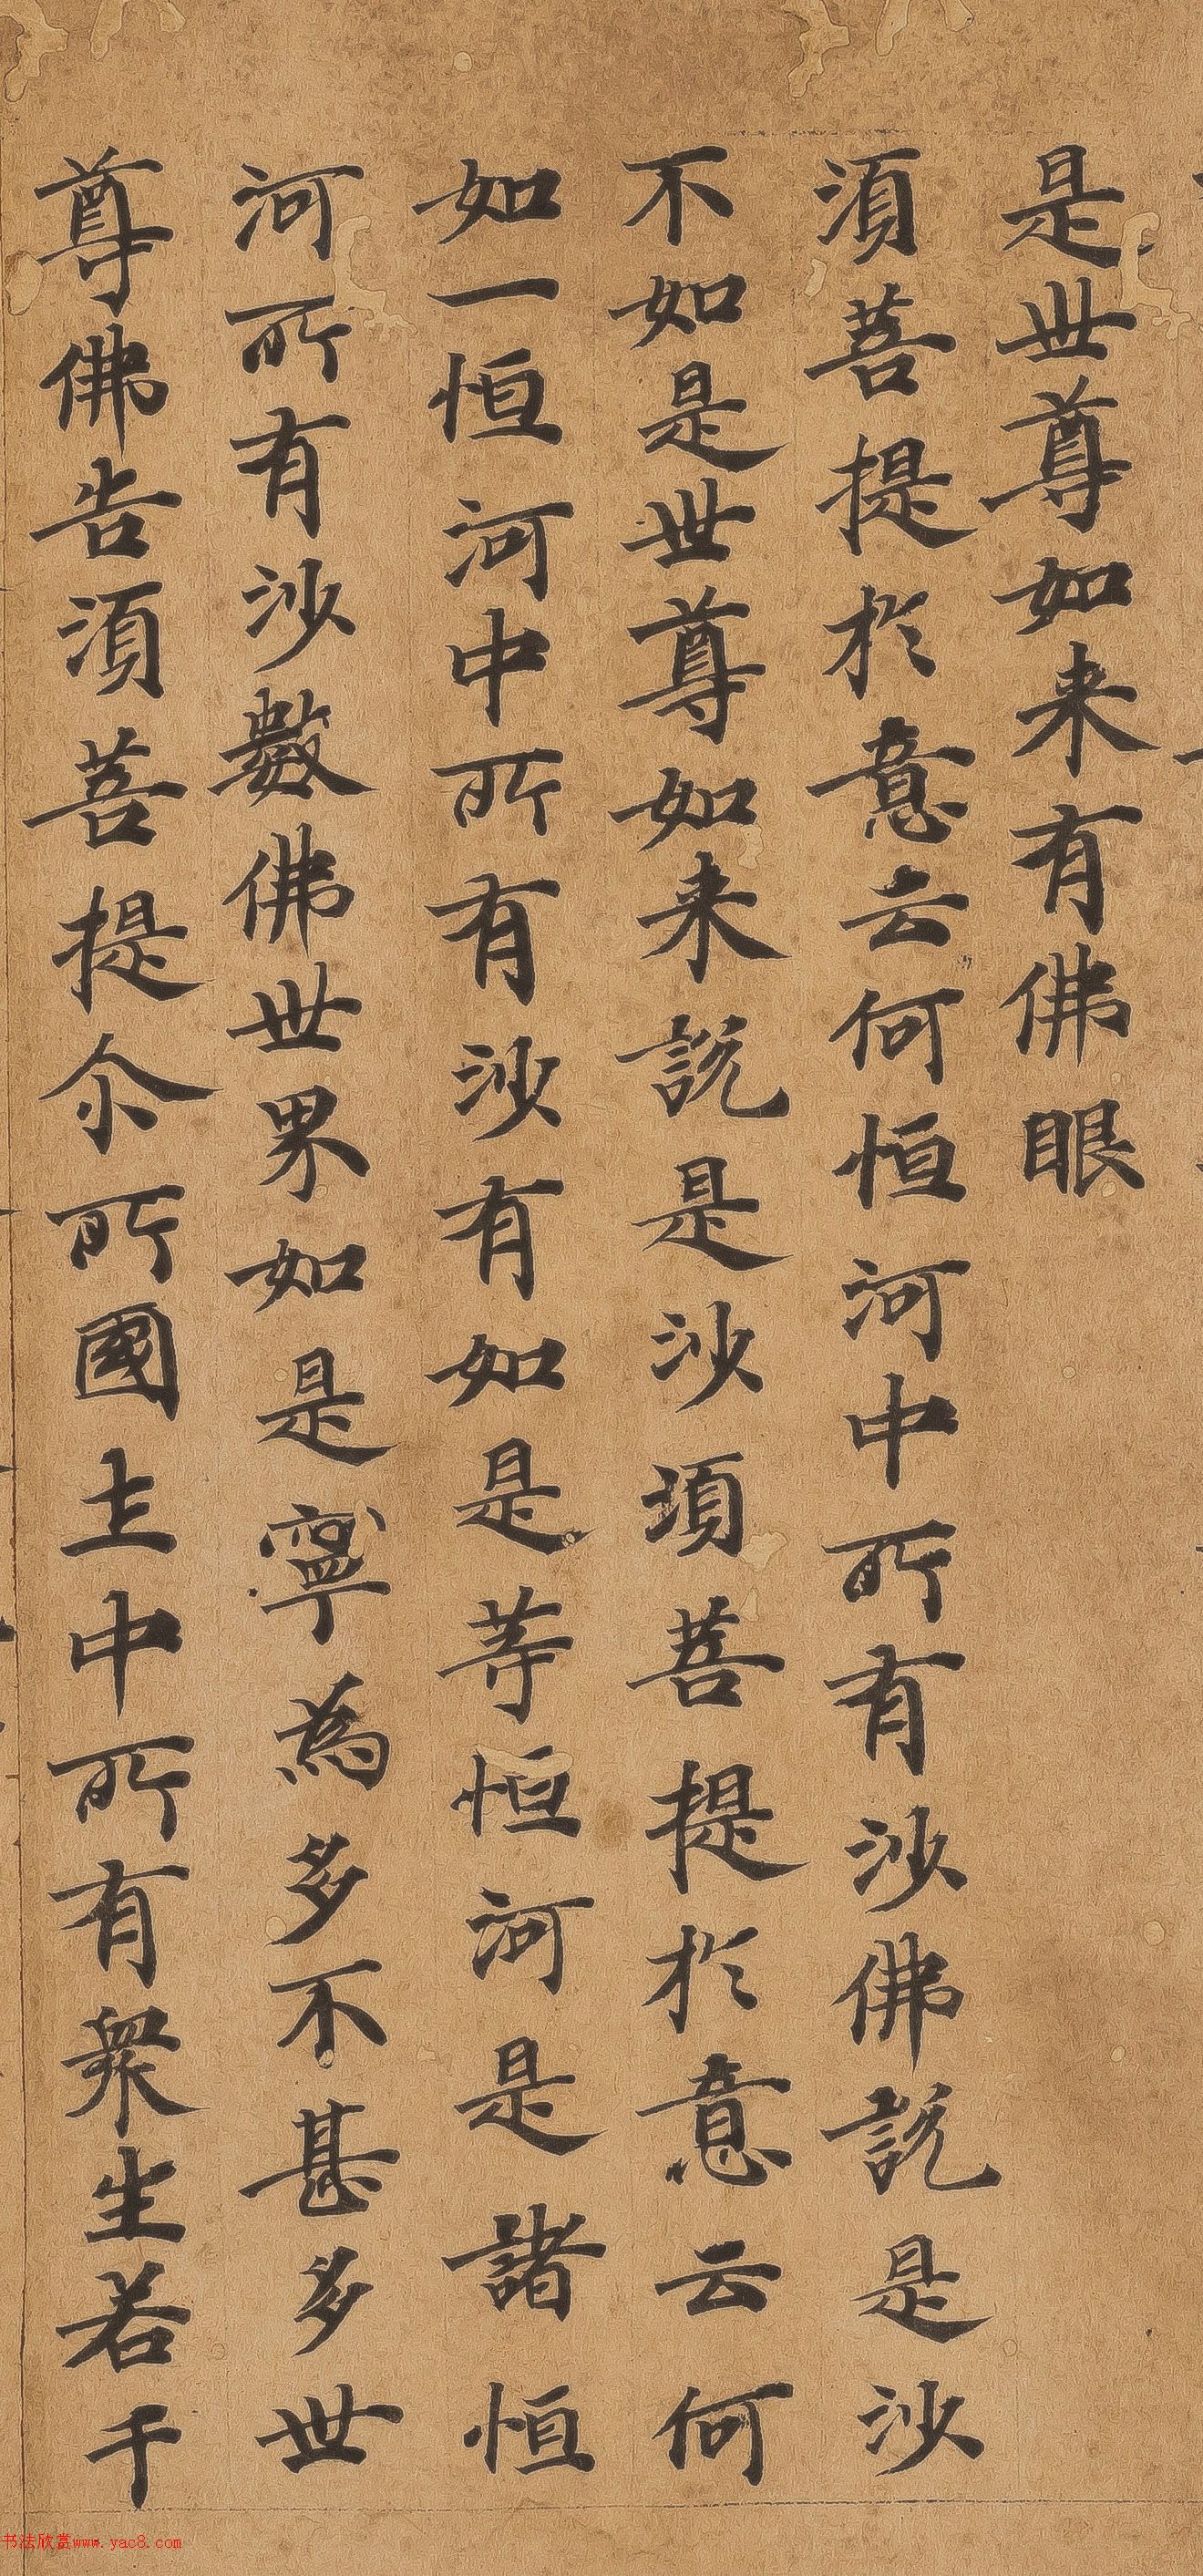 是世尊如来有佛眼
湏菩提於意云何恒河中所有沙佛説是沙
不如是世尊如来説是沙湏菩提於意云何
如一恒河中所有沙有如是等恒河是諸恒
河所有沙數佛世界如是寧為多不甚多世
尊佛告湏菩提尒所國土中所有衆生若干
书法欣赏www.yac8.com